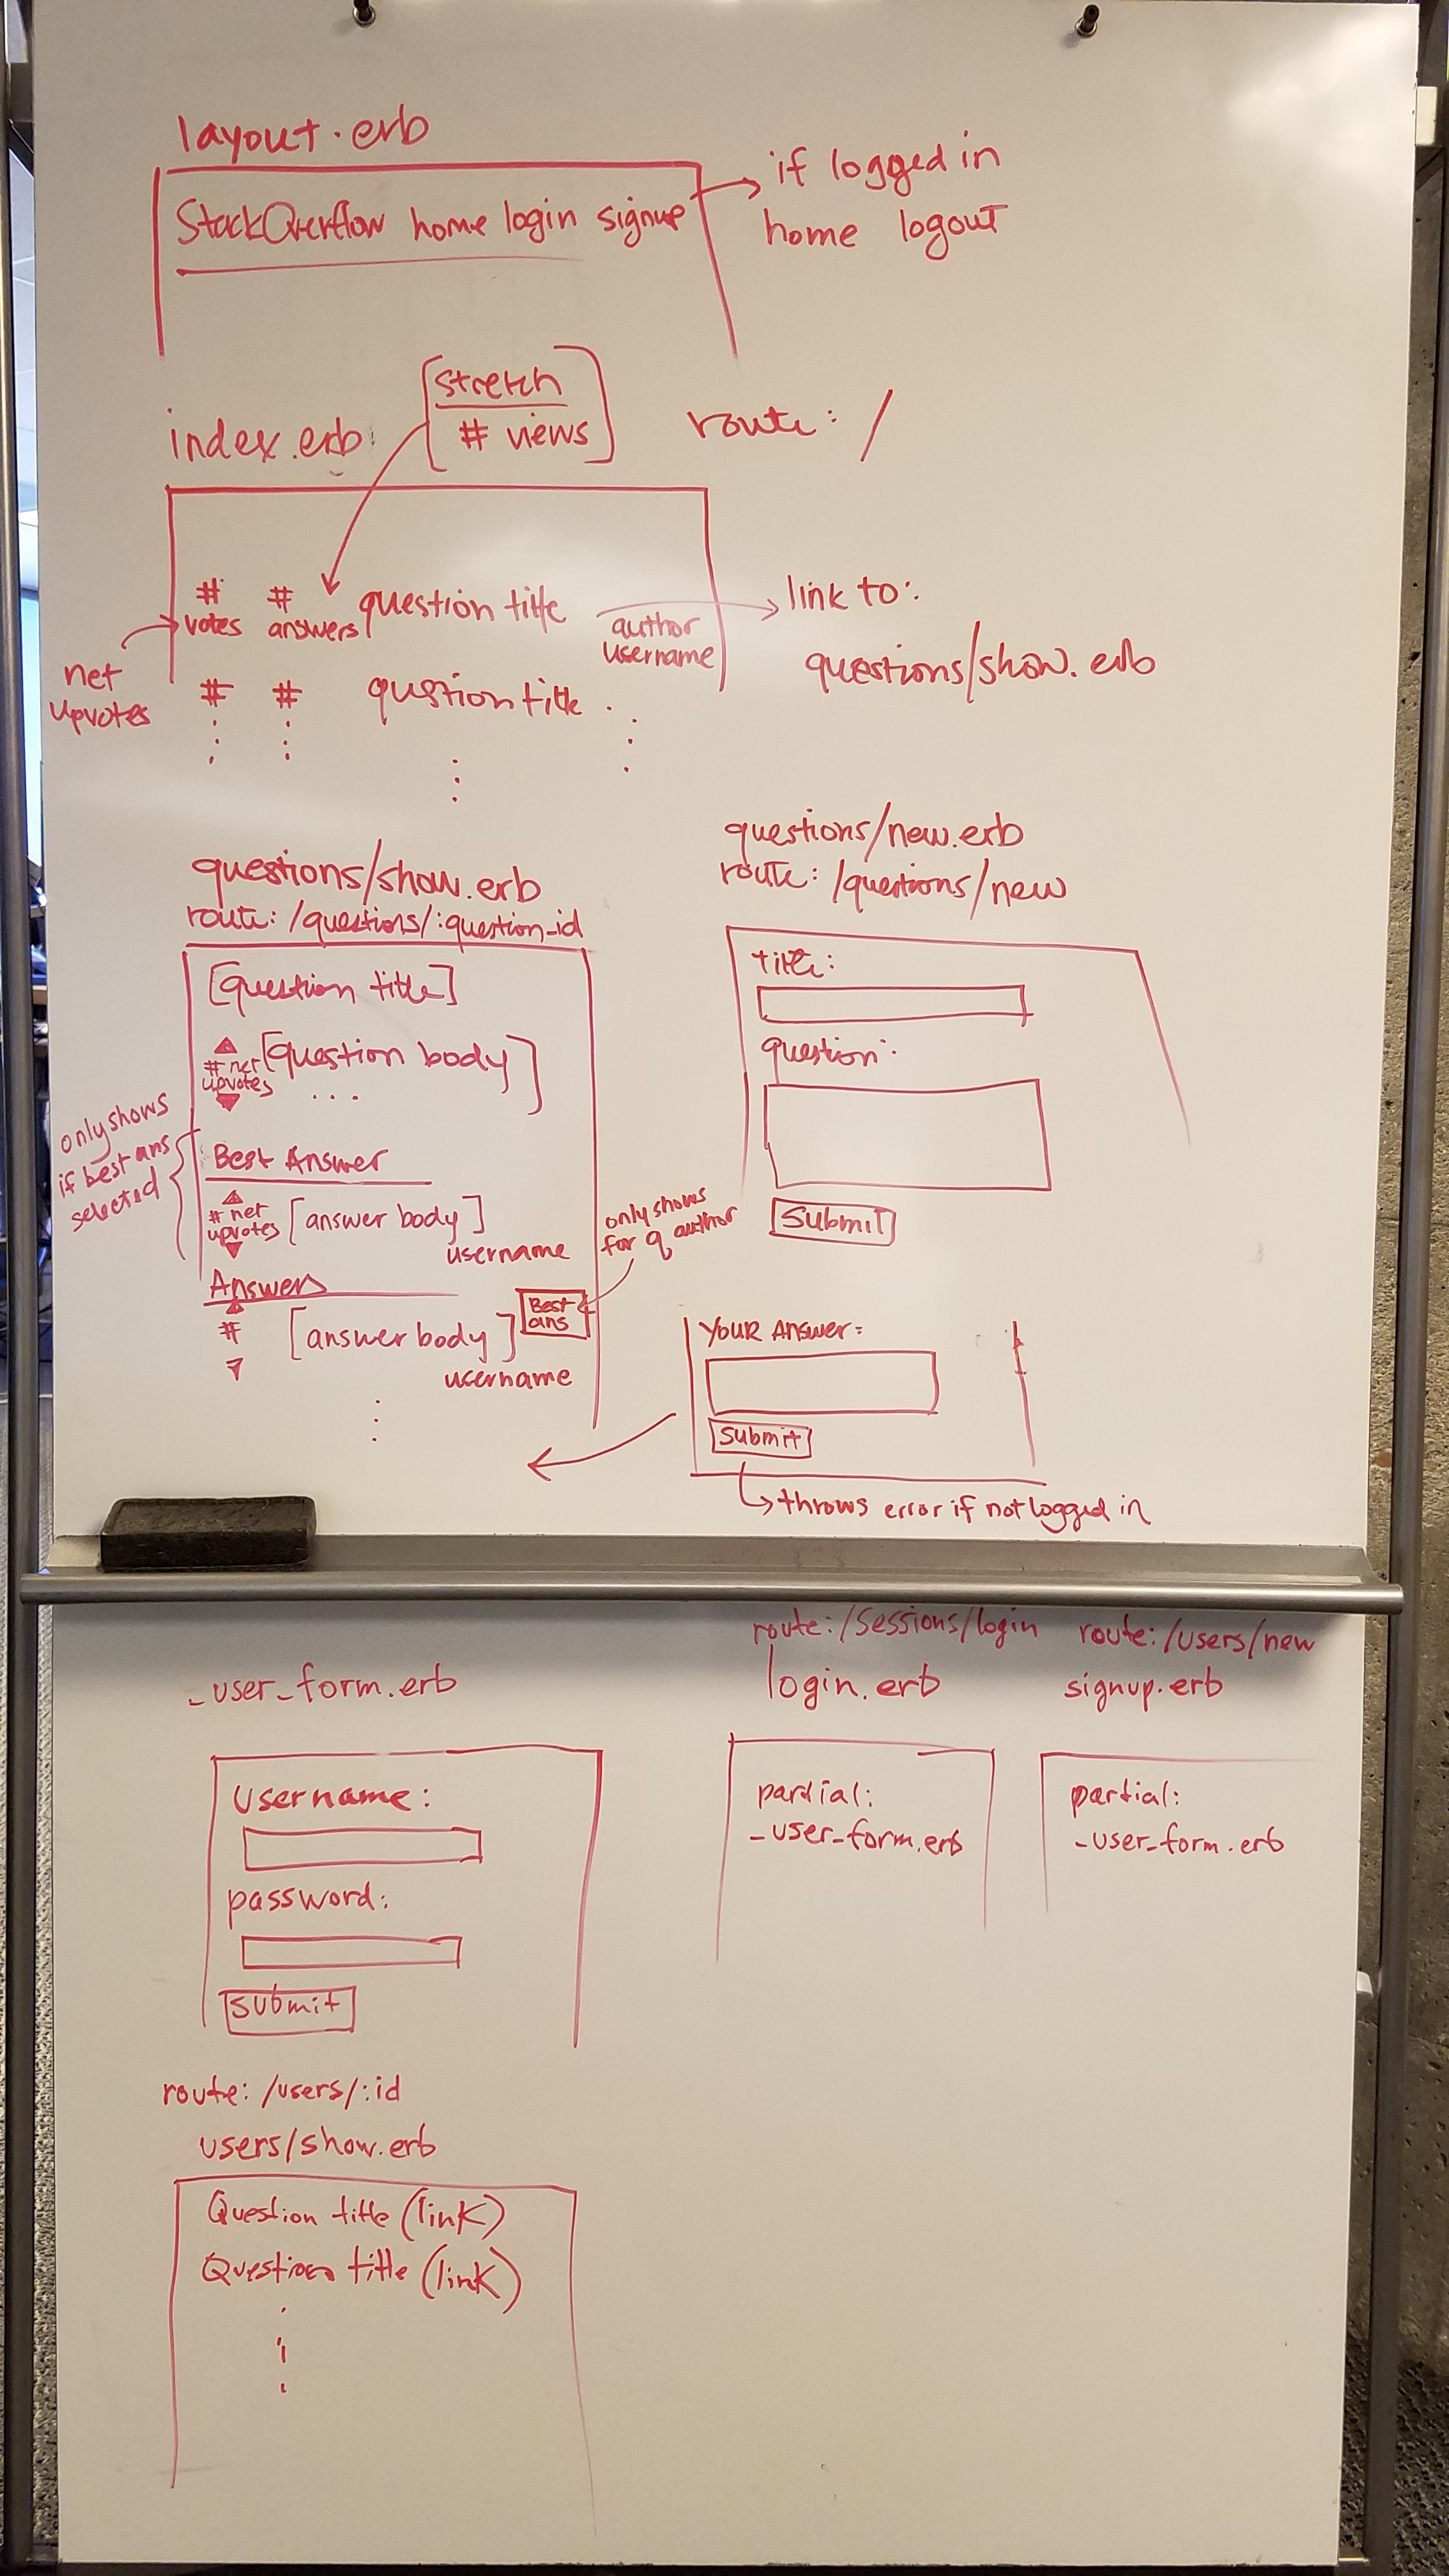 layout.erb
StackOverflow home login signup
if logged in
home logout
[stretch
# views]
index.erb
route: /
# votes # answers question title
author username
link to:
questions/show.erb
net upvotes
# # question title
questions/show.erb
route: /questions/:question_id
[question title]
# net upvotes
[question body]
...
only shows
if best ans
selected
Best Answer
# net upvotes
[answer body]
username
Answers
#
[answer body]
Best ans
username
only shows
for q author
questions/new.erb
route: /questions/new
title:
question:
Submit
YOUR Answer:
Submit
throws error if not logged in
_user_form.erb
username:
password:
submit
route: /sessions/login
login.erb
partial:
_user_form.erb
route: /users/new
signup.erb
partial:
_user_form.erb
route: /users/:id
users/show.erb
Question title (link)
Question title (link)